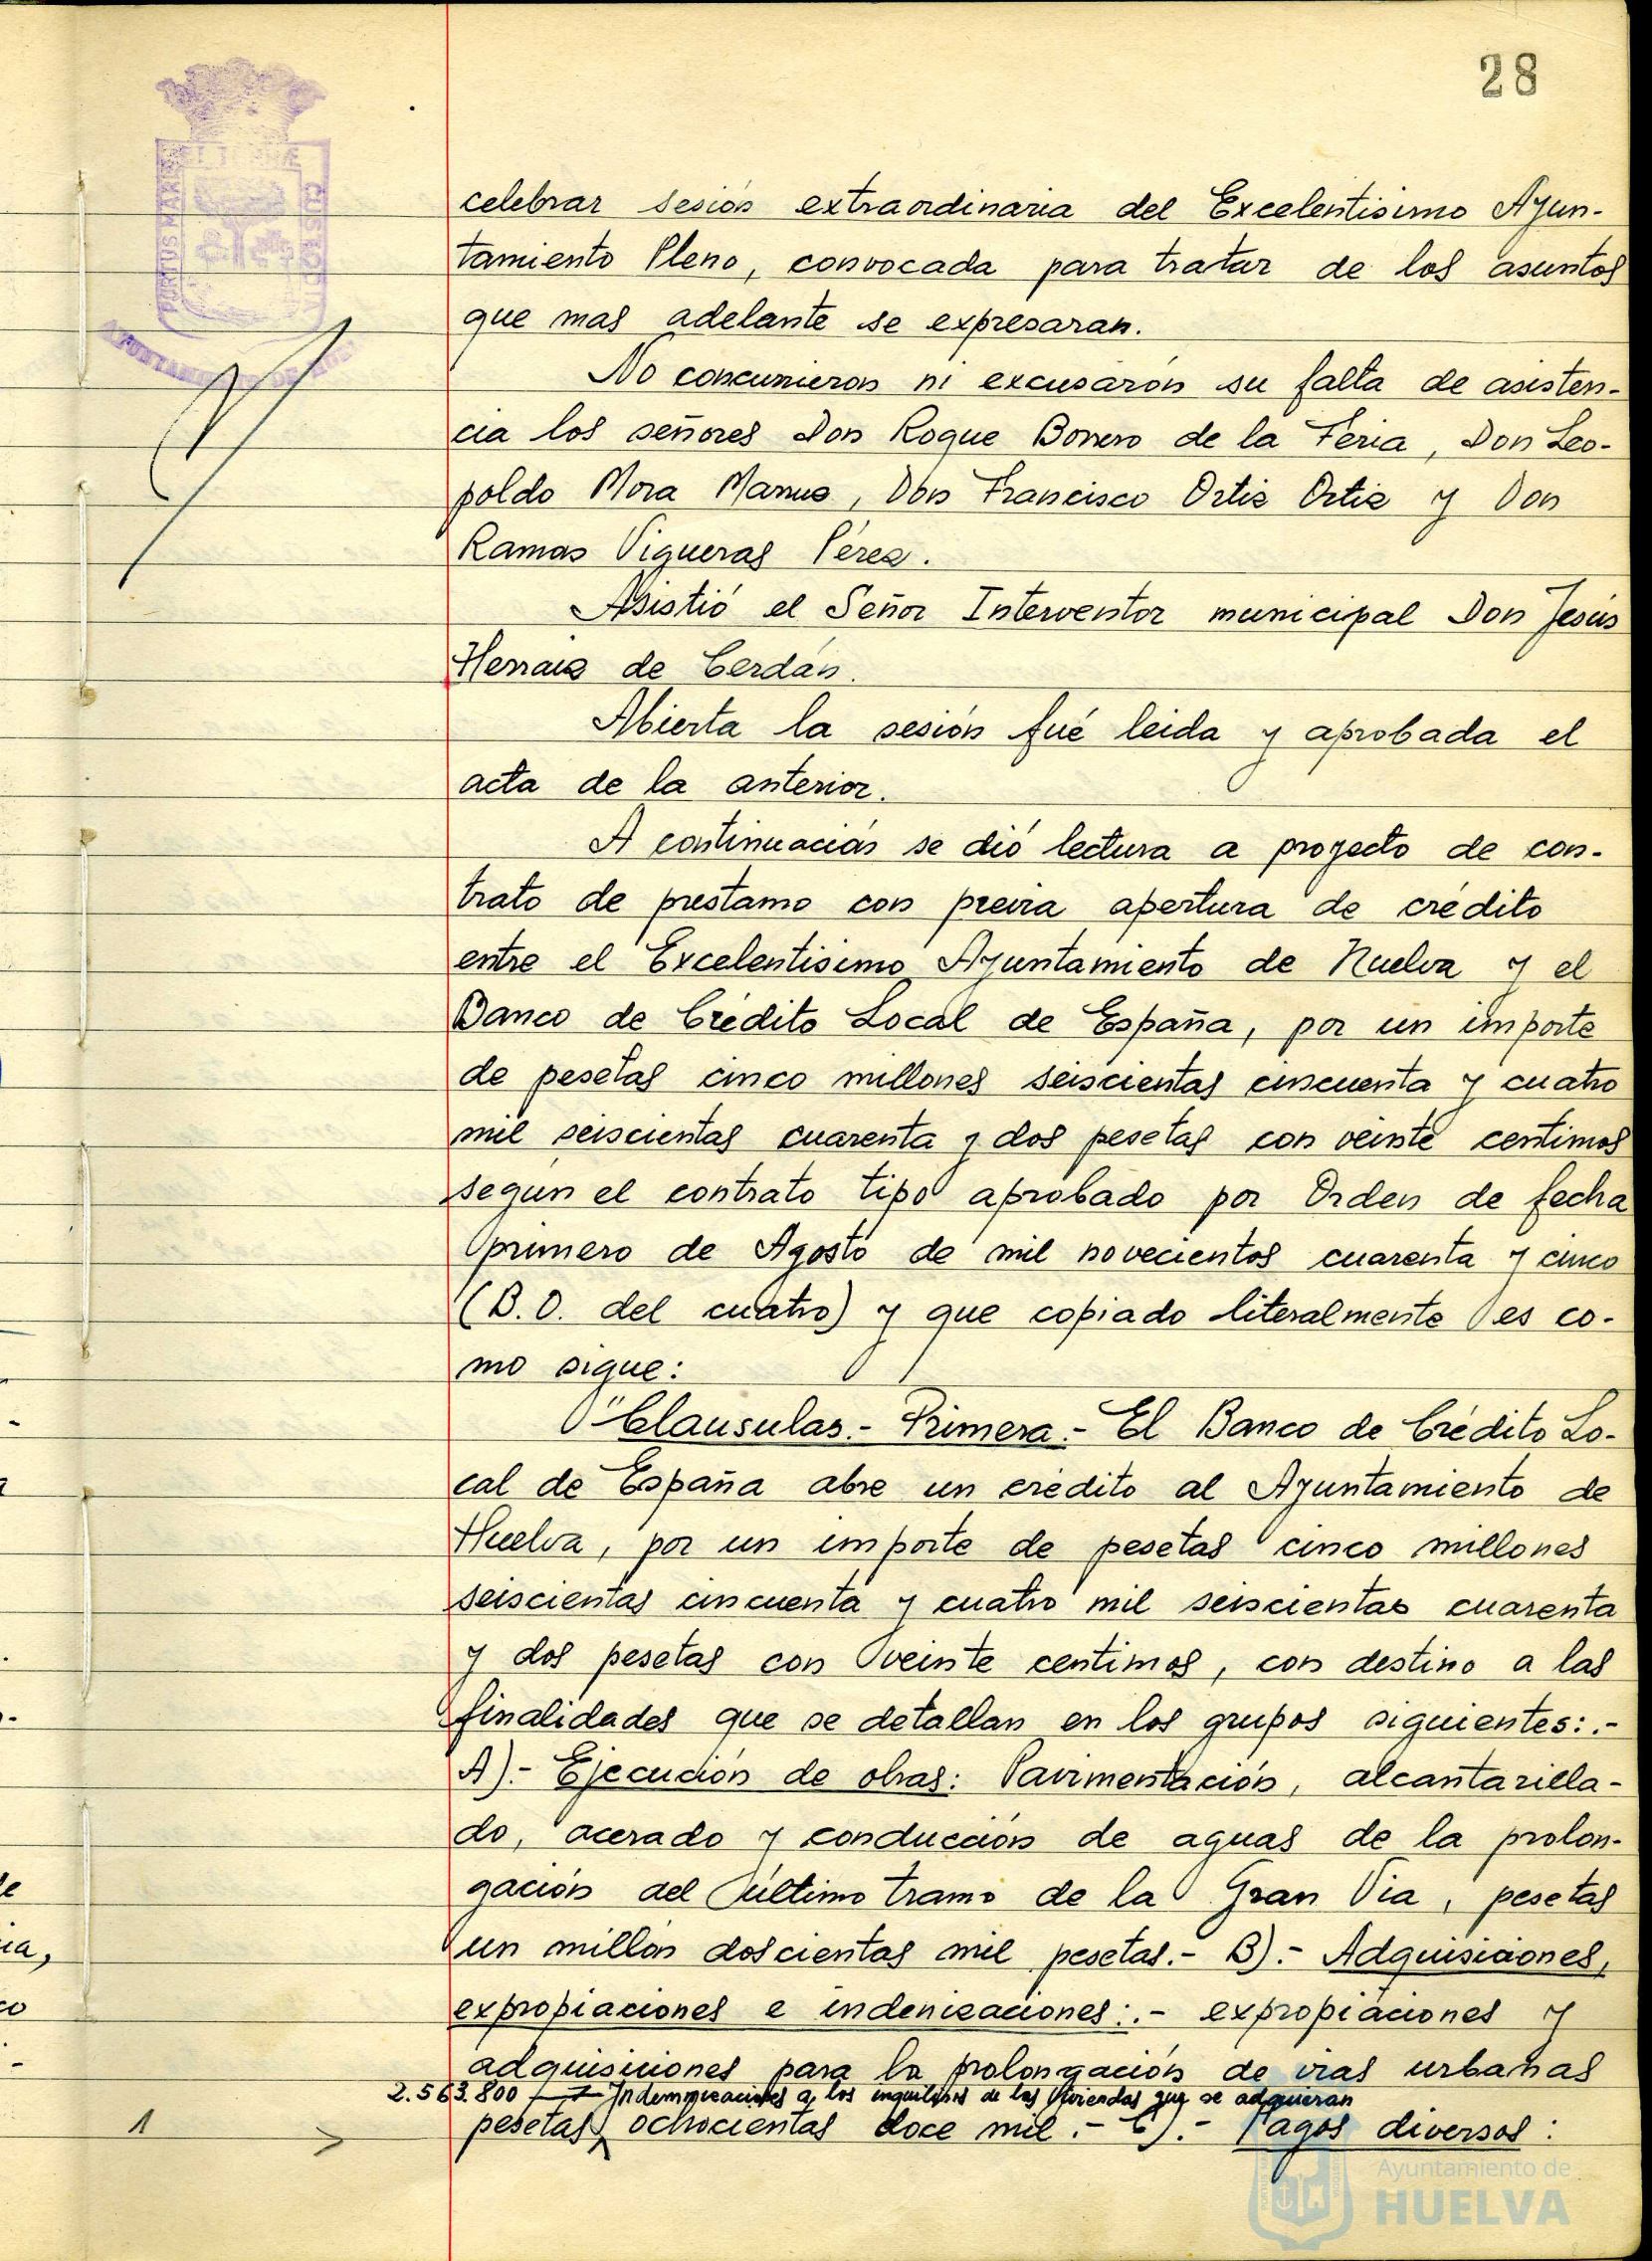 28
PORTUS MARIS ET TERRÆ CUSTODIA
AYUNTAMIENTO DE
celebrar sesión extraordinaria del Excelentisimo Ayun-
tamiento Pleno, convocada para tratar de los asuntos
que mas adelante se expresaran.
No concurrieron ni excusarón su falta de asisten-
cia los señores Don Roque Borrero de la Feria, Don Leo-
poldo Mora Don Francisco Ortiz Ortiz y Don
Ramon Vigueras Pérez.
Asistió el Señor Interventor municipal Don Jesús
Herraiz de Cerdán.
Abierta la sesión fué leida y aprobada el
acta de la anterior.
A continuación se dió lectura a proyecto de con-
trato de prestamo con previa apertura de crédito
entre el Excelentisimo Ayuntamiento de Huelva y el
Banco de Crédito Local de España, por un importe
de pesetas cinco millones seiscientas cincuenta y cuatro
mil seiscientas cuarenta y dos pesetas con veinte centimos
según el contrato tipo aprobado por Orden de fecha
primero de Agosto de mil novecientos cuarenta y cinco
(B.O. del cuatro) y que copiado literalmente es co-
mo sigue:
"Clausulas.- Primera.- El Banco de Crédito Lo-
cal de España abre un crédito al Ayuntamiento de
Huelva, por un importe de pesetas cinco millones
seiscientas cincuenta y cuatro mil seiscientas cuarenta
y dos pesetas con veinte centimos, con destino a las
finalidades que se detallan en los grupos siguientes:.-
A).- Ejecución de obras: Pavimentación, alcantarilla-
do, acerado y conducción de aguas de la prolon-
gación del último tramo de la Gran Via, pesetas
un millón doscientas mil pesetas.- B).- Adquisiciones,
expropiaciones e indenizaciones:.- expropiaciones y
adquisiciones para la prolongación de vias urbanas
2.563.800 Indemnizaciones a los inquilinos de las Viviendas que se adquieran
1 > pesetas, ochocientas doce mil.- C).- Pagos diversos:
Ayuntamiento de
HUELVA